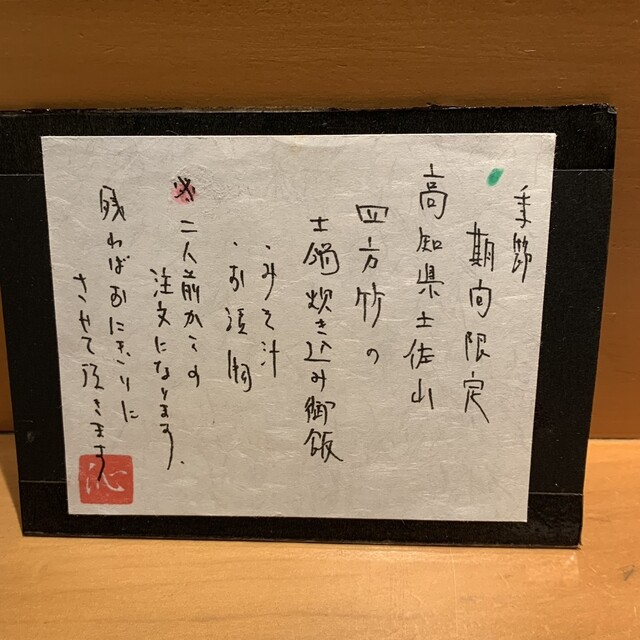 季節
期間限定
高知県土佐山
四方竹の
土鍋炊き込み御飯
・みそ汁
・お漬物
※二人前からの
注文になります。
残ればおにぎりに
させて頂きます
沁